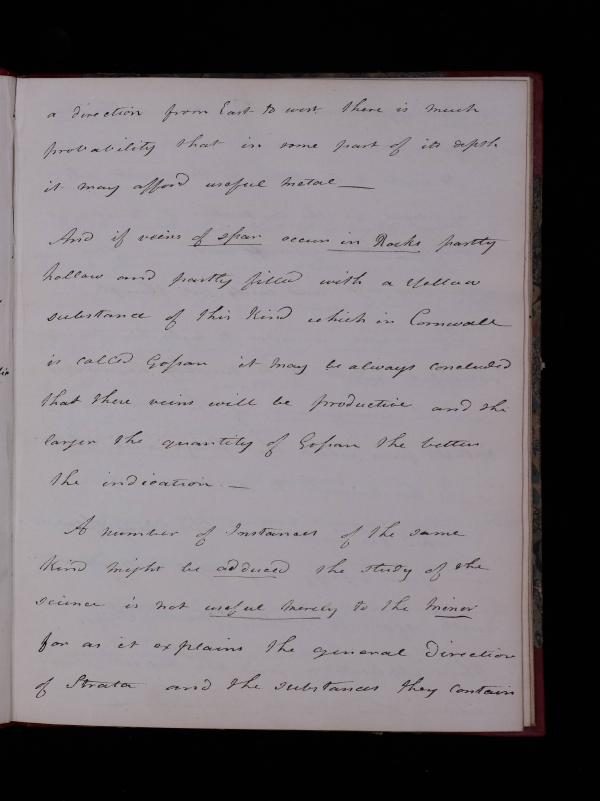 a direction from East to west. there is much
probability that in some part of its depth
it may afford useful metal —
And if veins of spar occur in Rocks partly
hollow and partly filled with a Yellow
substance of this Kind which in Cornwall
is called Gossan it may be always concluded
that these veins will be productive and the
larger the quantity of Gossan the better
the indication. —
A number of Instances of the same
Kind might be adduced the study of the
science is not useful merely to the Miner
for as it explains the general Direction
of Strata and the substances they contain